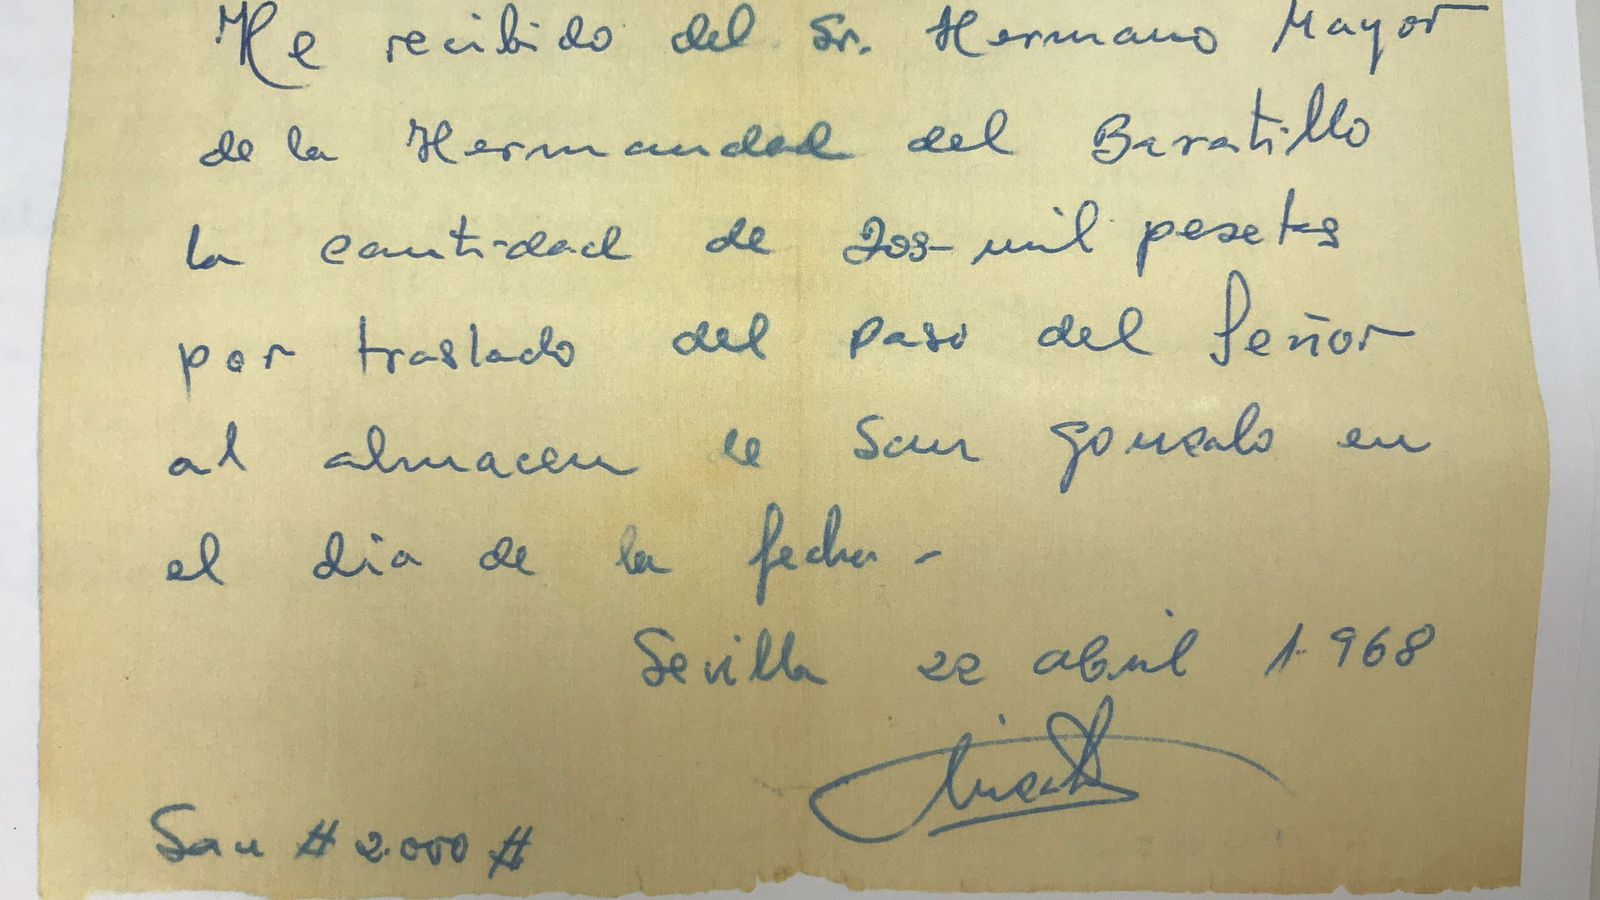 He recibido del Sr. Hermano Mayor
de la Hermandad del Baratillo
la cantidad de Dos mil pesetas
por traslado del paso del Señor
al almacen de San Gonzalo en
el dia de la fecha -
Sevilla 22 abril 1.968
Son # 2.000 #